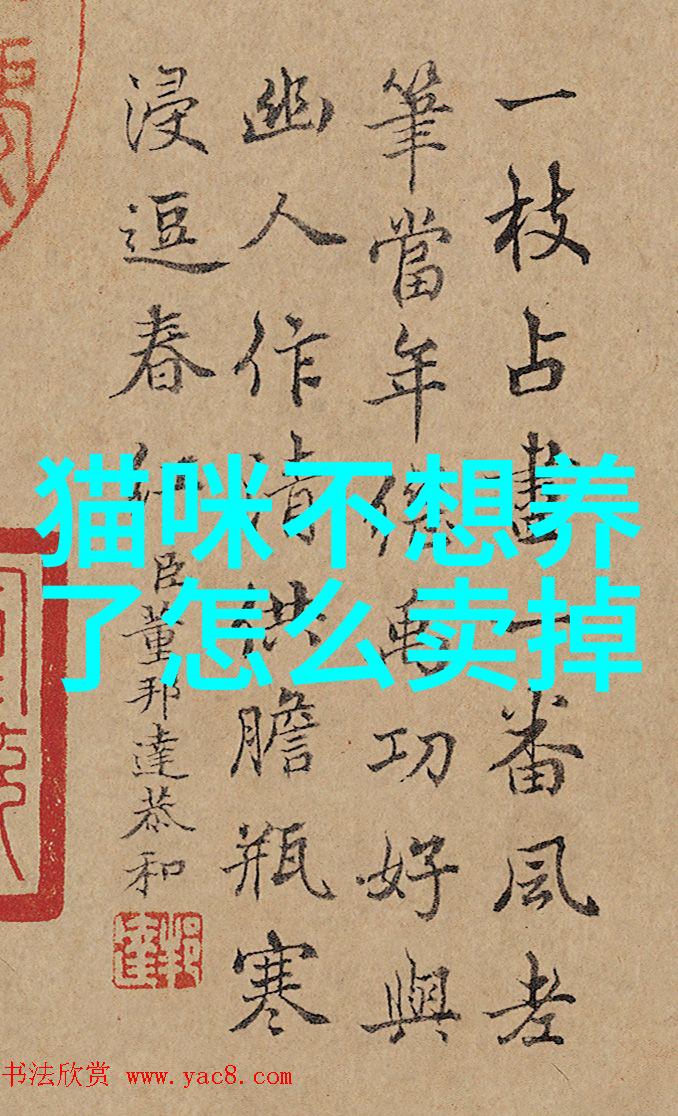 一枝占盡一番風老
筆當年傳禹功好與
幽人作清供膽瓶寒
浸逗春紅
臣董邦達恭和
邦達
猫咪不想养
了怎么卖掉
书法欣赏 www.yac8.com